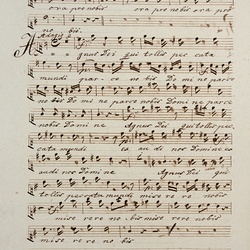 ora pro nobis ora pro nobis ora pro
no bis.
Agnus Dei qui tollis pec cata
mundi par ce no bis Do mi ne parce
no bis Do mi ne parce nobis Domi ne parce
nobis Domi ne Agnus Dei qui tollis pec
cata mundi ex au di nos Domine ex
audi nos Domi ne Agnus Dei qui
tollis peccata mundi mise re re nobis
mise re re no bis mise re re nobis
mise re re no bis